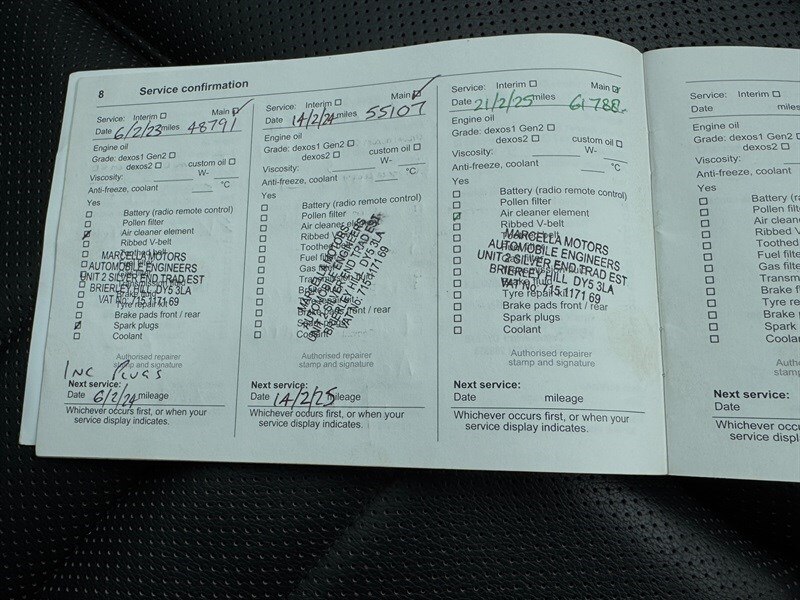 8 Service confirmation
Service: Interim ☐ Main ☑
Date 6/2/23 miles 48791
Engine oil
Grade: dexos1 Gen2 ☐
dexos2 ☐ custom oil ☐
Viscosity: W-
Anti-freeze, coolant °C
Yes
☐ Battery (radio remote control)
☐ Pollen filter
☑ Air cleaner element
☐ Ribbed V-belt
MARCELLA MOTORS
AUTOMOBILE ENGINEERS
UNIT 2 SILVER END TRAD EST
BRIERLEY HILL DY5 3LA
VAT No. 715 1171 69
☐ Tyre repair kit
☐ Brake pads front / rear
☑ Spark plugs
☐ Coolant
Authorised repairer
stamp and signature
INC PLUGS
Next service:
Date 6/2/24 mileage
Whichever occurs first, or when your
service display indicates.
Service: Interim ☐ Main ☑
Date 14/2/24 miles 55107
Engine oil
Grade: dexos1 Gen2 ☐
dexos2 ☐ custom oil ☐
Viscosity: W-
Anti-freeze, coolant °C
Yes
☐ Battery (radio remote control)
☐ Pollen filter
☐ Air cleaner
☐ Ribbed V
☐ Toothed
☐ Fuel
☐ Gas
MARCELLA MOTORS
AUTOMOBILE ENGINEERS
UNIT 2 SILVER END TRAD EST
BRIERLEY HILL DY5 3LA
VAT No. 715 1171 69
☐ Brake pads front / rear
☐ Spark plugs
☐ Coolant
Authorised repairer
stamp and signature
Next service:
Date 14/2/25 mileage
Whichever occurs first, or when your
service display indicates.
Service: Interim ☐ Main ☑
Date 21/2/25 miles 61788
Engine oil
Grade: dexos1 Gen2 ☐
dexos2 ☐ custom oil ☐
Viscosity: W-
Anti-freeze, coolant °C
Yes
☐ Battery (radio remote control)
☐ Pollen filter
☑ Air cleaner element
☐ Ribbed V-belt
MARCELLA MOTORS
AUTOMOBILE ENGINEERS
UNIT 2 SILVER END TRAD EST
BRIERLEY HILL DY5 3LA
VAT No. 715 1171 69
☐ Tyre repair kit
☐ Brake pads front / rear
☐ Spark plugs
☐ Coolant
Authorised repairer
stamp and signature
Next service:
Date mileage
Whichever occurs first, or when your
service display indicates.
Service: Interim ☐
Date miles
Engine oil
Grade: dexos1 Gen2 ☐
dexos2 ☐
Viscosity:
Anti-freeze, coolant
Yes
☐ Battery (ra
☐ Pollen filte
☐ Air cleane
☐ Ribbed V-
☐ Toothed b
☐ Fuel filter
☐ Gas filter
☐ Transmis
☐ Brake flu
☐ Tyre repa
☐ Brake pa
☐ Spark plu
☐ Coolant
Authorised
stamp and
Next service:
Date
Whichever occu
service display